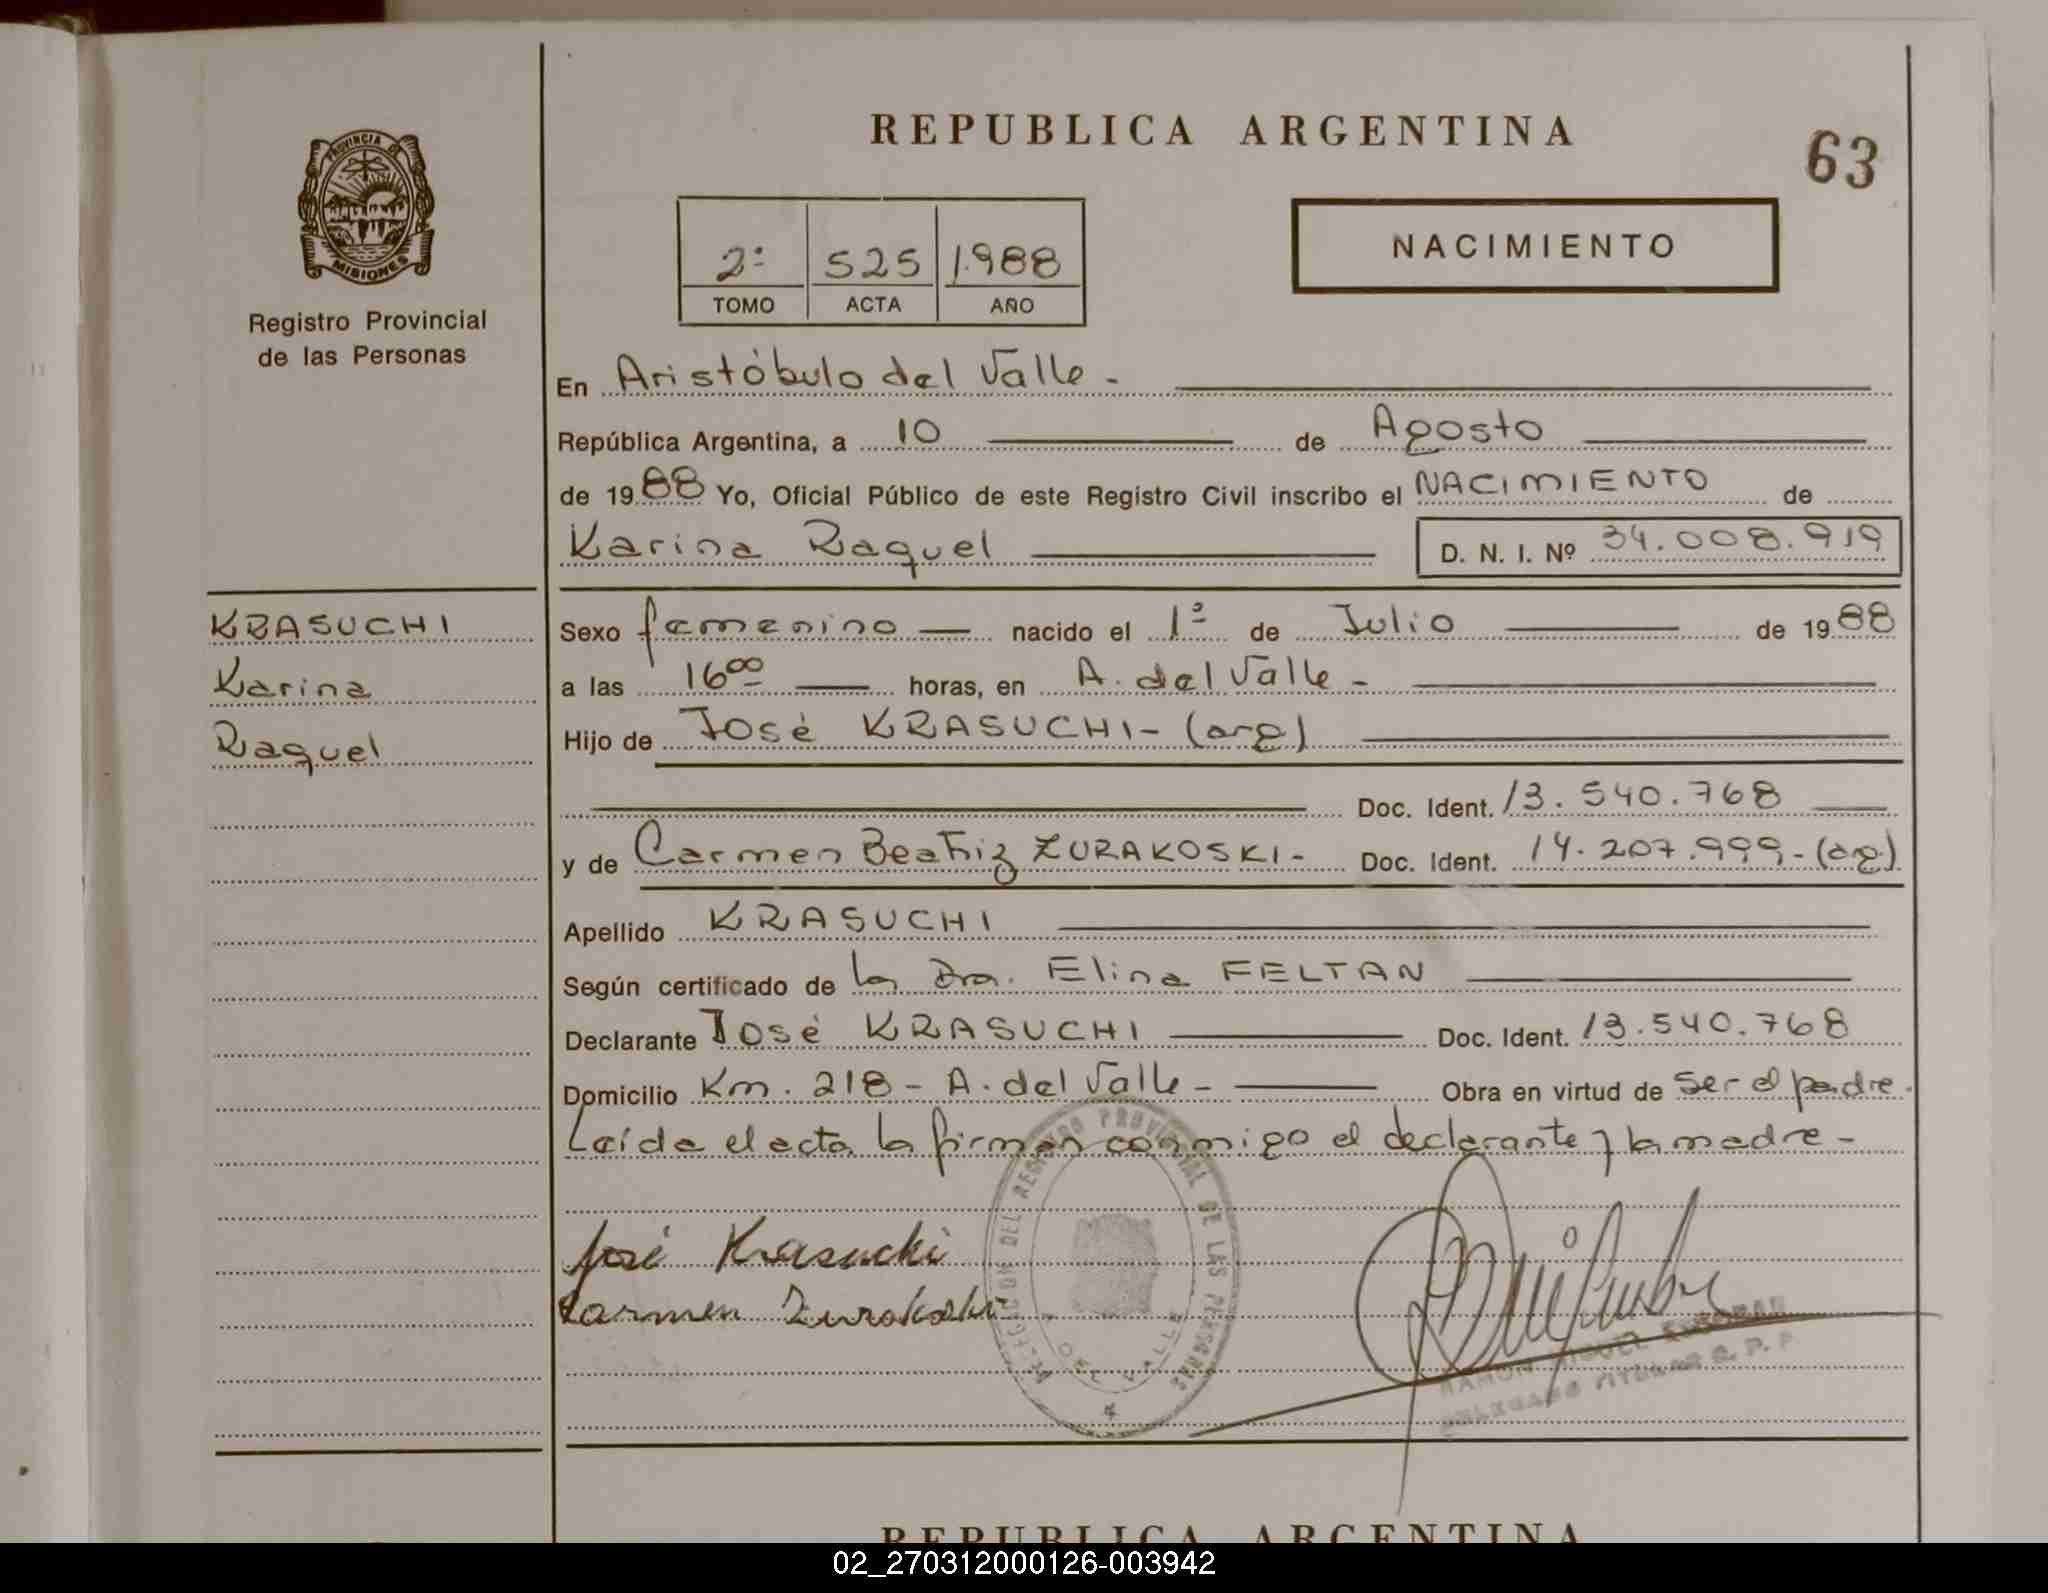 REPUBLICA ARGENTINA
63
PROVINCIA DE
MISIONES
Registro Provincial
de las Personas
2º 525 1.988
TOMO ACTA AÑO
NACIMIENTO
En Aristóbulo del Valle -
República Argentina, a 10 de Agosto
de 1988 Yo, Oficial Público de este Registro Civil inscribo el NACIMIENTO de
Karina Raquel D. N. I. Nº 34.008.919
KRASUCHI
Karina
Raquel
Sexo femenino nacido el 1º de Julio de 1988
a las 16 00 horas, en A. del Valle -
Hijo de José KRASUCHI - (arg)
Doc. Ident. 13.540.768
y de Carmen Beatriz ZURAKOSKI - Doc. Ident. 14.207.999 - (arg)
Apellido KRASUCHI
Según certificado de la Dra. Elina FELTAN
Declarante José KRASUCHI Doc. Ident. 13.540.768
Domicilio Km. 218 - A. del Valle - Obra en virtud de ser el padre.
Leída el acta la firman conmigo el declarante y la madre -
José Krasuchi
Carmen Zurakoski
DEL REGISTRO PROVINCIAL DE LAS PERSONAS
DEL VALLE
RAMON MIGUEL
DELEGADO TITULAR R. P. P.
REPUBLICA ARGENTINA
02_270312000126-003942